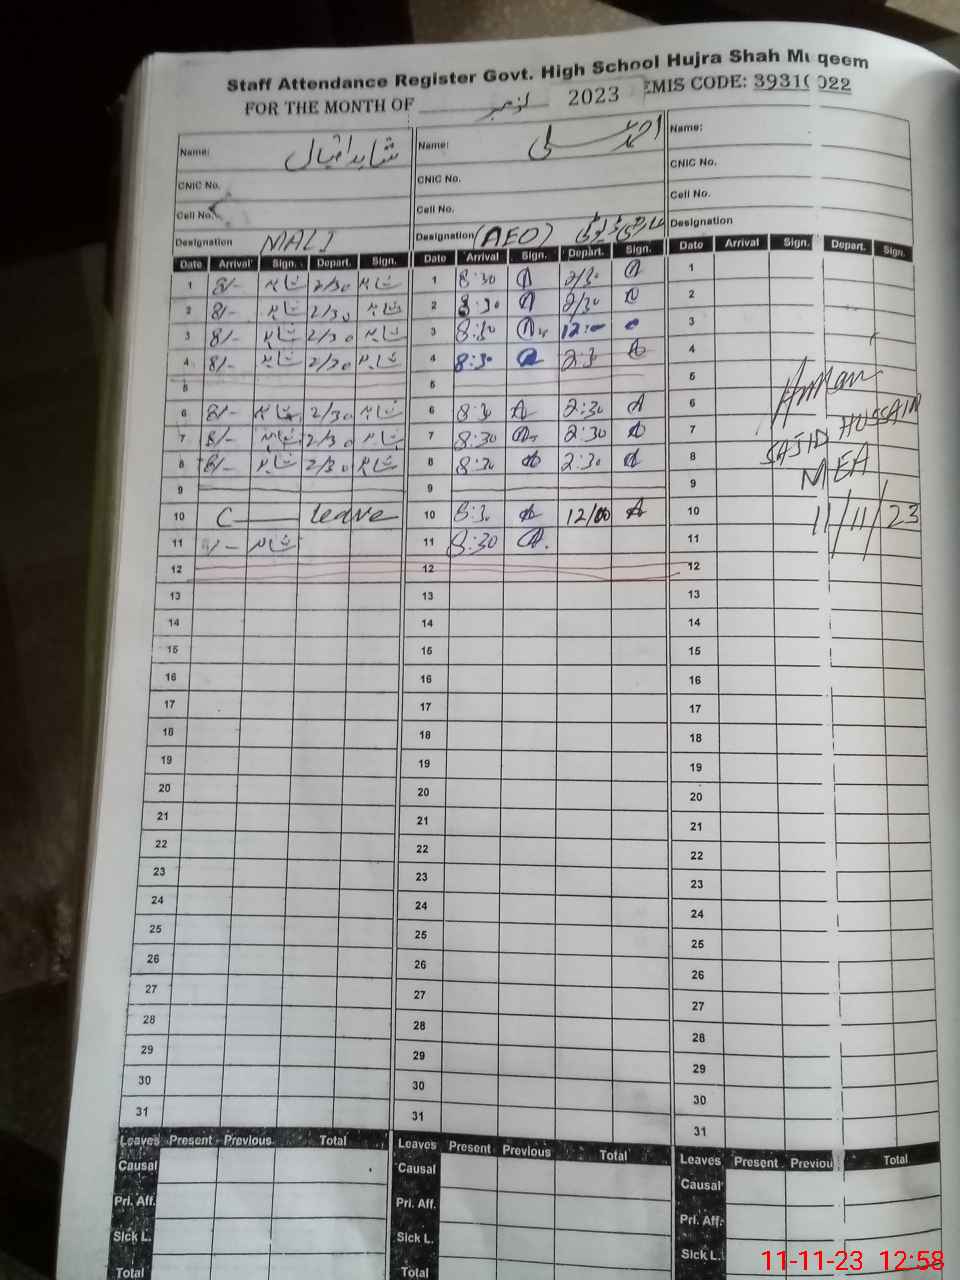 Staff Attendance Register Govt. High School Hujra Shah Muqeem
FOR THE MONTH OF نومبر 2023 EMIS CODE: 39310022
Name: شاہد اقبال
CNIC No.
Cell No.
Designation MALI
Date Arrival Sign. Depart. Sign.
1 8/- شاہد 2/30 شاہد
2 8/- شاہد 2/30 شاہد
3 8/- شاہد 2/30 شاہد
4 8/- شاہد 2/30 شاہد
5
6 8/- شاہد 2/30 شاہد
7 8/- شاہد 2/30 شاہد
8 8/- شاہد 2/30 شاہد
9
10 C leave
11 8/- شاہد
12
13
14
15
16
17
18
19
20
21
22
23
24
25
26
27
28
29
30
31
Leaves Present Previous Total
Causal
Pri. Aff.
Sick L.
Total
Name: احمد علی
CNIC No.
Cell No.
Designation (AEO)
Date Arrival Sign. Depart. Sign.
1 8:30 2/30
2 8:30 2/30
3 8:30 12:00
4 8:30 2:30
5
6 8:30 2:30
7 8:30 2:30
8 8:30 2:30
9
10 8:30 12/00
11 8:30
12
13
14
15
16
17
18
19
20
21
22
23
24
25
26
27
28
29
30
31
Leaves Present Previous Total
Causal
Pri. Aff.
Sick L.
Total
Name:
CNIC No.
Cell No.
Designation
Date Arrival Sign. Depart. Sign.
1
2
3
4
5
6
7
8
9
10
11
12
13
14
15
16
17
18
19
20
21
22
23
24
25
26
27
28
29
30
31
SAJID HUSSAIN
MEA
11/11/23
Leaves Present Previou Total
Causal
Pri. Aff.
Sick L.
11-11-23 12:58